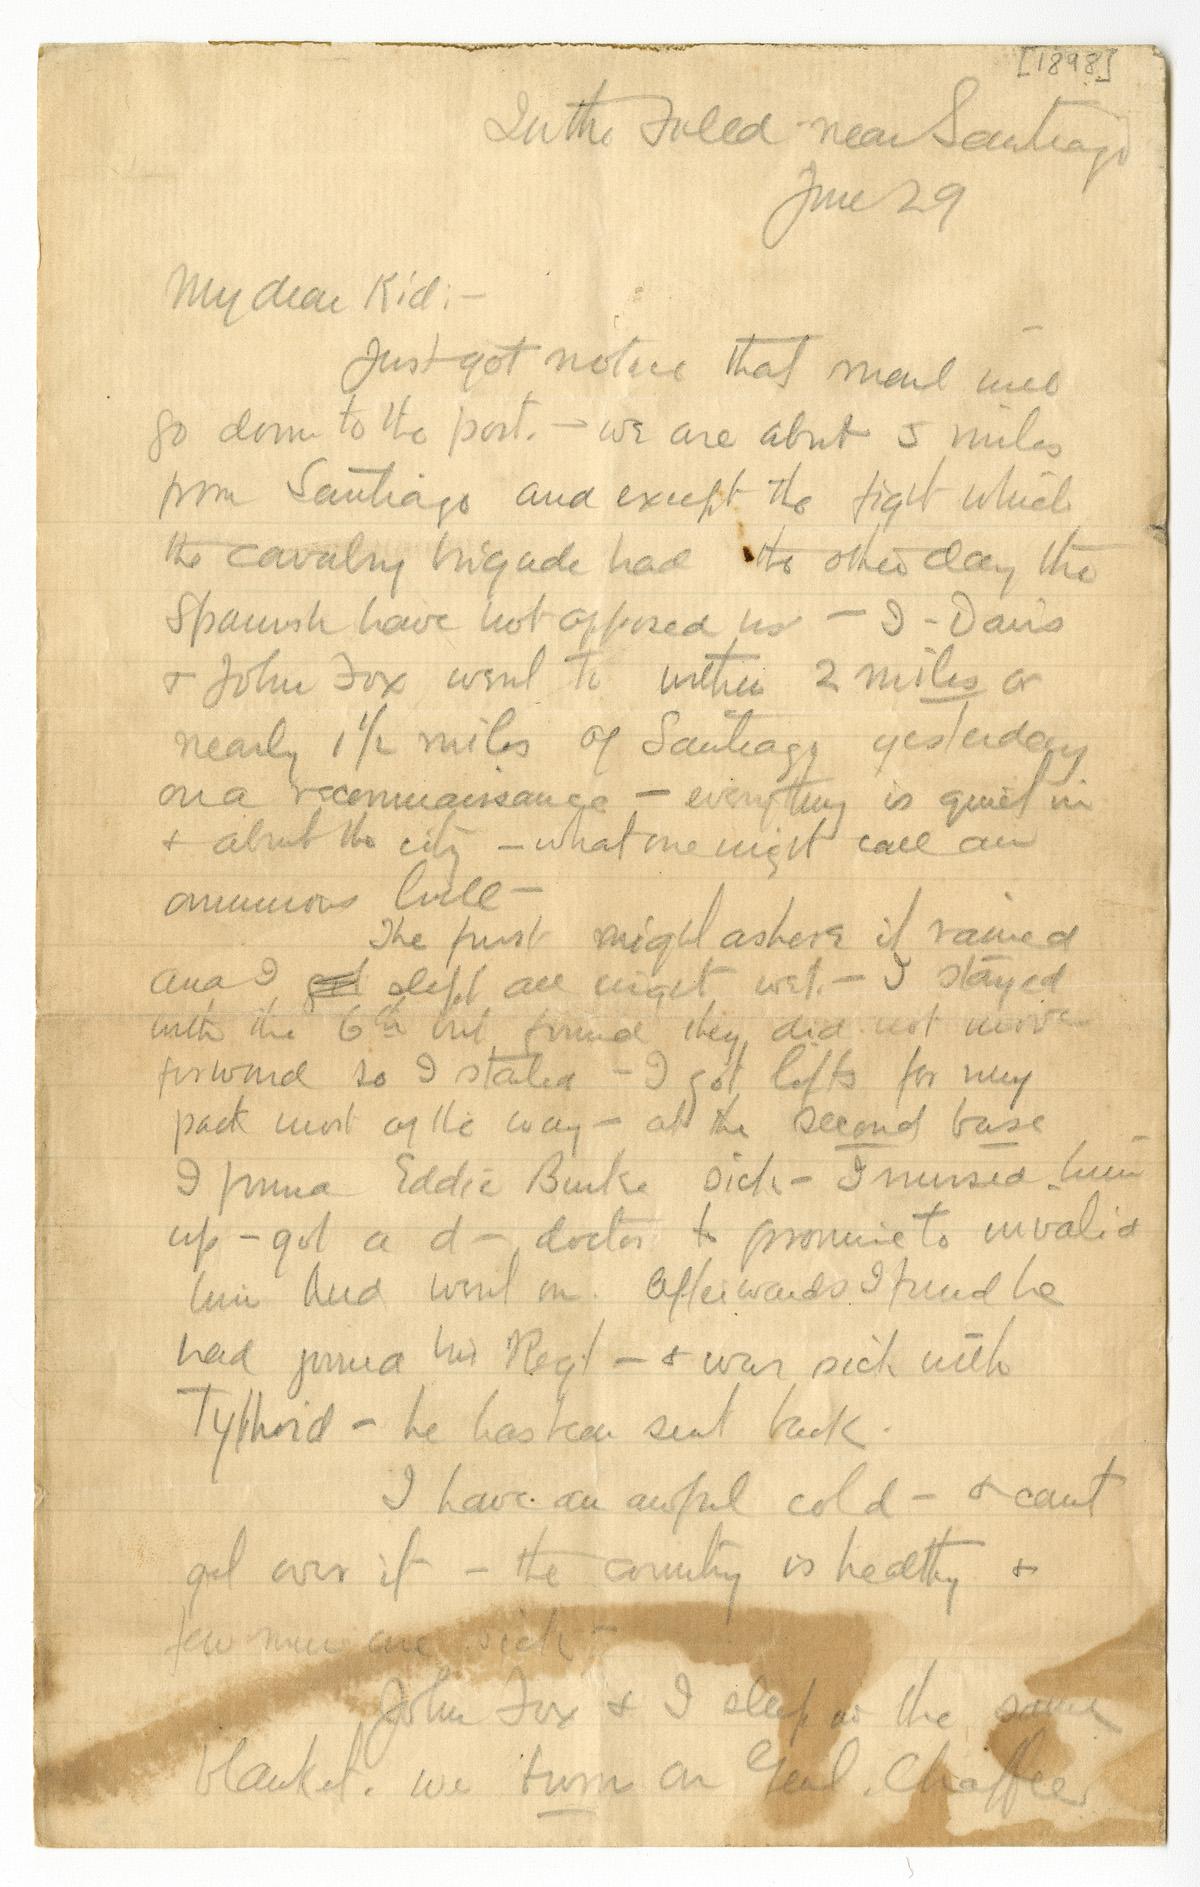 [1898]
In the Field near Santiago
June 29
My dear Kid:—
Just got notice that mail will
go down to the post. — we are about 5 miles
from Santiago and except the fight which
the cavalry brigade had the other day the
Spanish have not opposed us — I - Davis
& John Fox went to within 2 miles or
nearly 1 1/2 miles of Santiago yesterday
on a reconnaissance — everything is quiet in
& about the city — what one might call an
ominous lull —
The first night ashore it rained
and I slept all night wet. — I stayed
with the 6th but found they did not move
forward so I started — I got lifts for my
pack most of the way — at the second base
I found Eddie Burke sick — I nursed him
up — got a d— doctor to promise to invalid
him and went on. Afterwards I found he
had joined his Regt — & was sick with
Typhoid — he has been sent back.
I have an awful cold — & cant
get over it — the country is healthy &
few men are sick —
John Fox & I sleep in the same
blanket. we turn on Genl. Chaffee